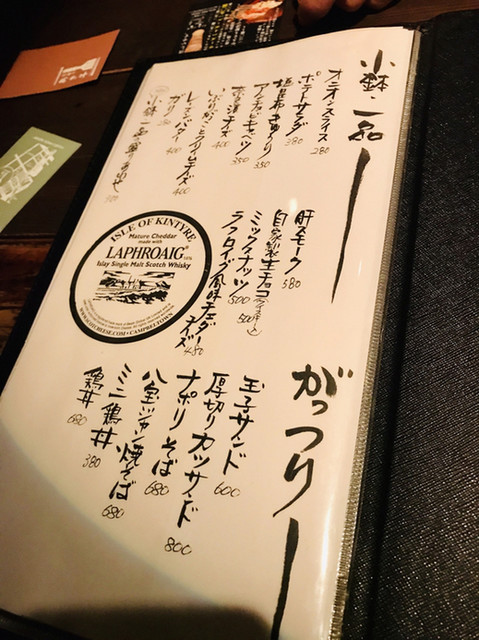 小鉢・一品
オニオンスライス 280
ポテトサラダ 380
塩昆布きゅうり 350
アンチョビキャベツ 350
400
いぶりがっことクリームチーズ 400
レーズンバター 400
ガリ
小鉢
肝スモーク 580
自家製生チョコ 500
ミックスナッツ 500
ラフロイグ風味チェダーチーズ 480
ISLE OF KINTYRE
Mature Cheddar
made with
LAPHROAIG
Islay Single Malt Scotch Whisky
CAMPBELTOWN
がっつり
玉子サンド 600
厚切りカツサンド 800
ナポリそば 680
八宝ジャン焼そば 680
ミニ鶏丼 380
鶏丼 680